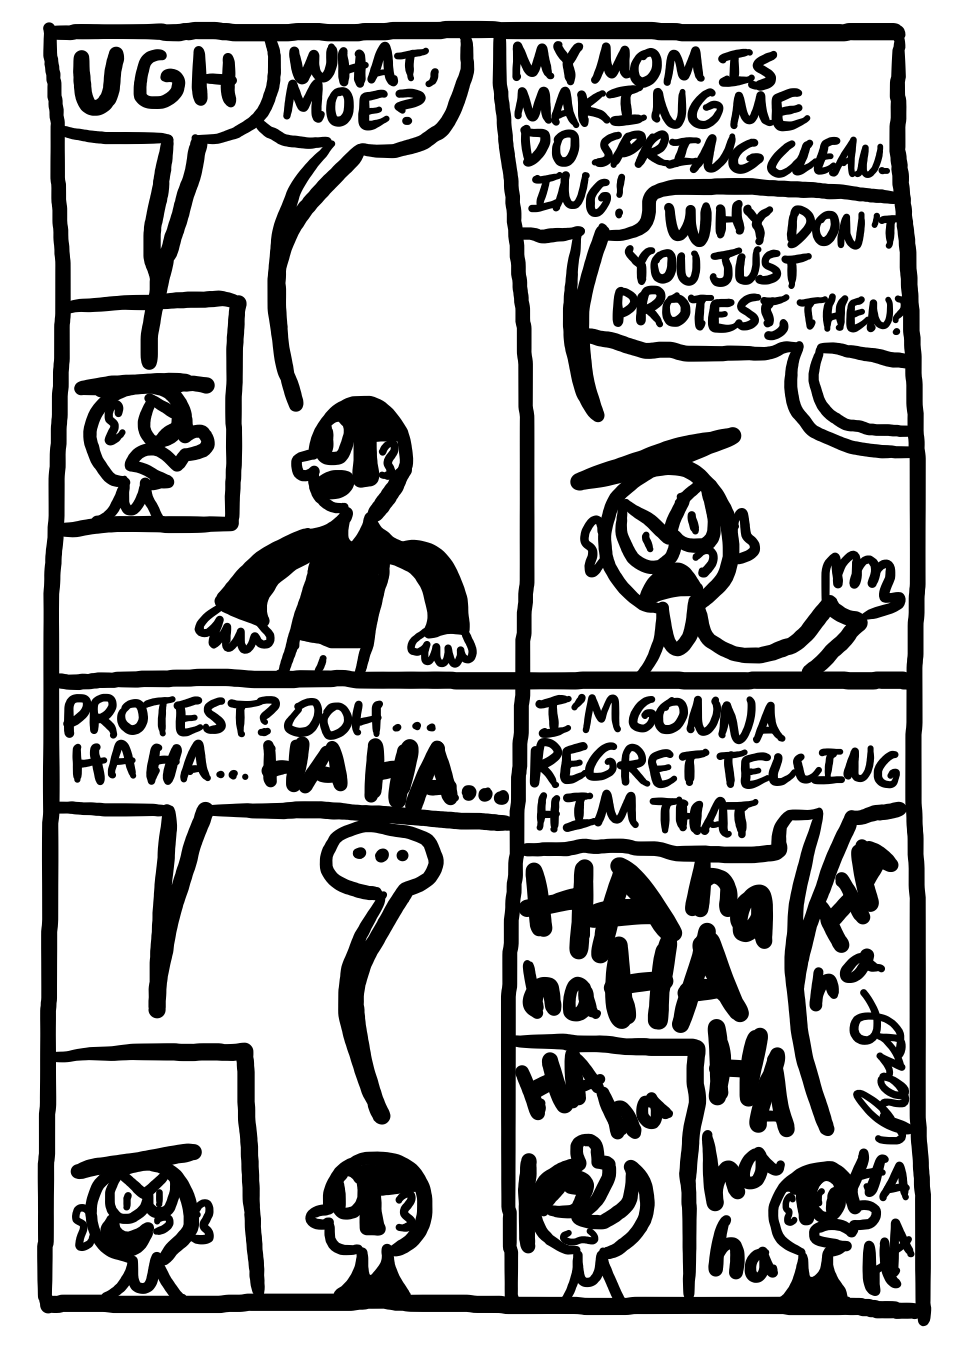 UGH
WHAT,
MOE?
MY MOM IS
MAKING ME
DO SPRING CLEAN-
ING!
WHY DON'T
YOU JUST
PROTEST, THEN?
PROTEST? OOH...
HA HA... HA HA...
...
I'M GONNA
REGRET TELLING
HIM THAT
HA ha HA
ha HA ha
HA ha
HA
ha HA
ha HA